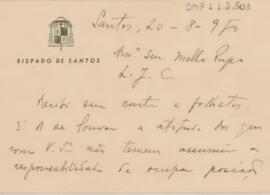 CMP 1.1.2.503
Santos, 20-8-950
BISPADO DE SANTOS
Exmº. Snr. Mello Pupo
L. J. C.
Recebi sua carta e folhetos.
É de louvar a atitude dos que
com V. Sª não temem assumir a
responsabilidade de ocupar posição